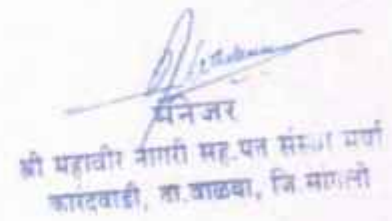 मॅनेजर
श्री महावीर नागरी सह.पत संस्था मर्या
कारंदवाडी, ता.वाळवा, जि.सांगली